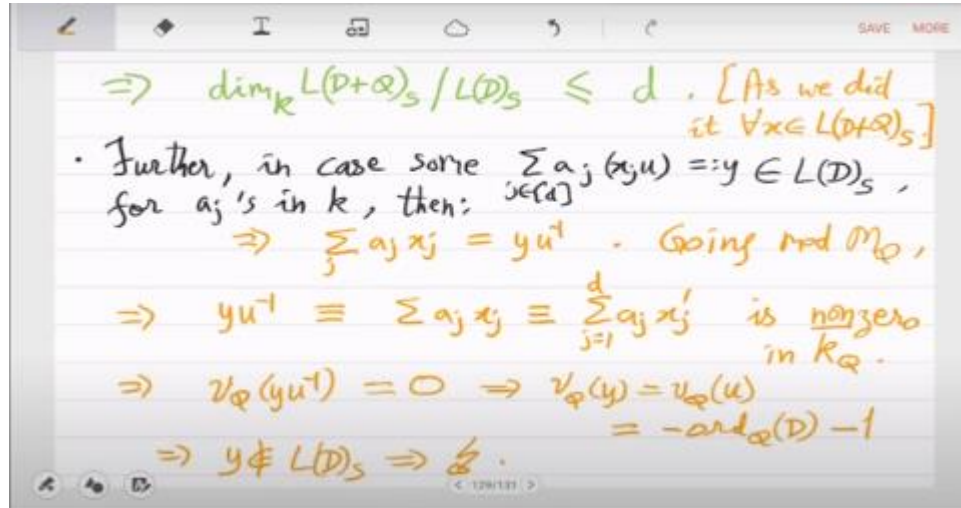 SAVE MORE
=> dim_k L(D+Q)_S / L(D)_S ≤ d . [As we did
it ∀x∈ L(D+Q)_S.]
· Further, in case some Σ_{j∈[d]} a_j (x_j u) =: y ∈ L(D)_S ,
for a_j's in k , then:
=> Σ_j a_j x_j = y u^{-1} . Going mod M_Q ,
=> y u^{-1} ≡ Σ a_j x_j ≡ Σ_{j=1}^{d} a_j x_j' is nonzero
in k_Q .
=> v_Q (y u^{-1}) = 0 => v_Q(y) = v_Q(u)
= -ord_Q(D) -1
=> y ∉ L(D)_S => ↯ .
< 129/131 >